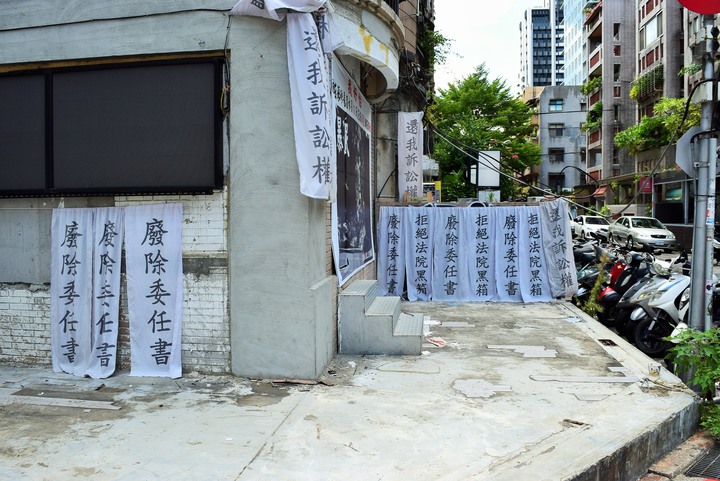 廢除委任書
廢除委任書
廢除委任書
還我訴訟權
還我訴訟權
廢除委任書
拒絕法院黑箱
廢除委任書
拒絕法院黑箱
廢除委任書
拒絕法院黑箱
還我訴訟權